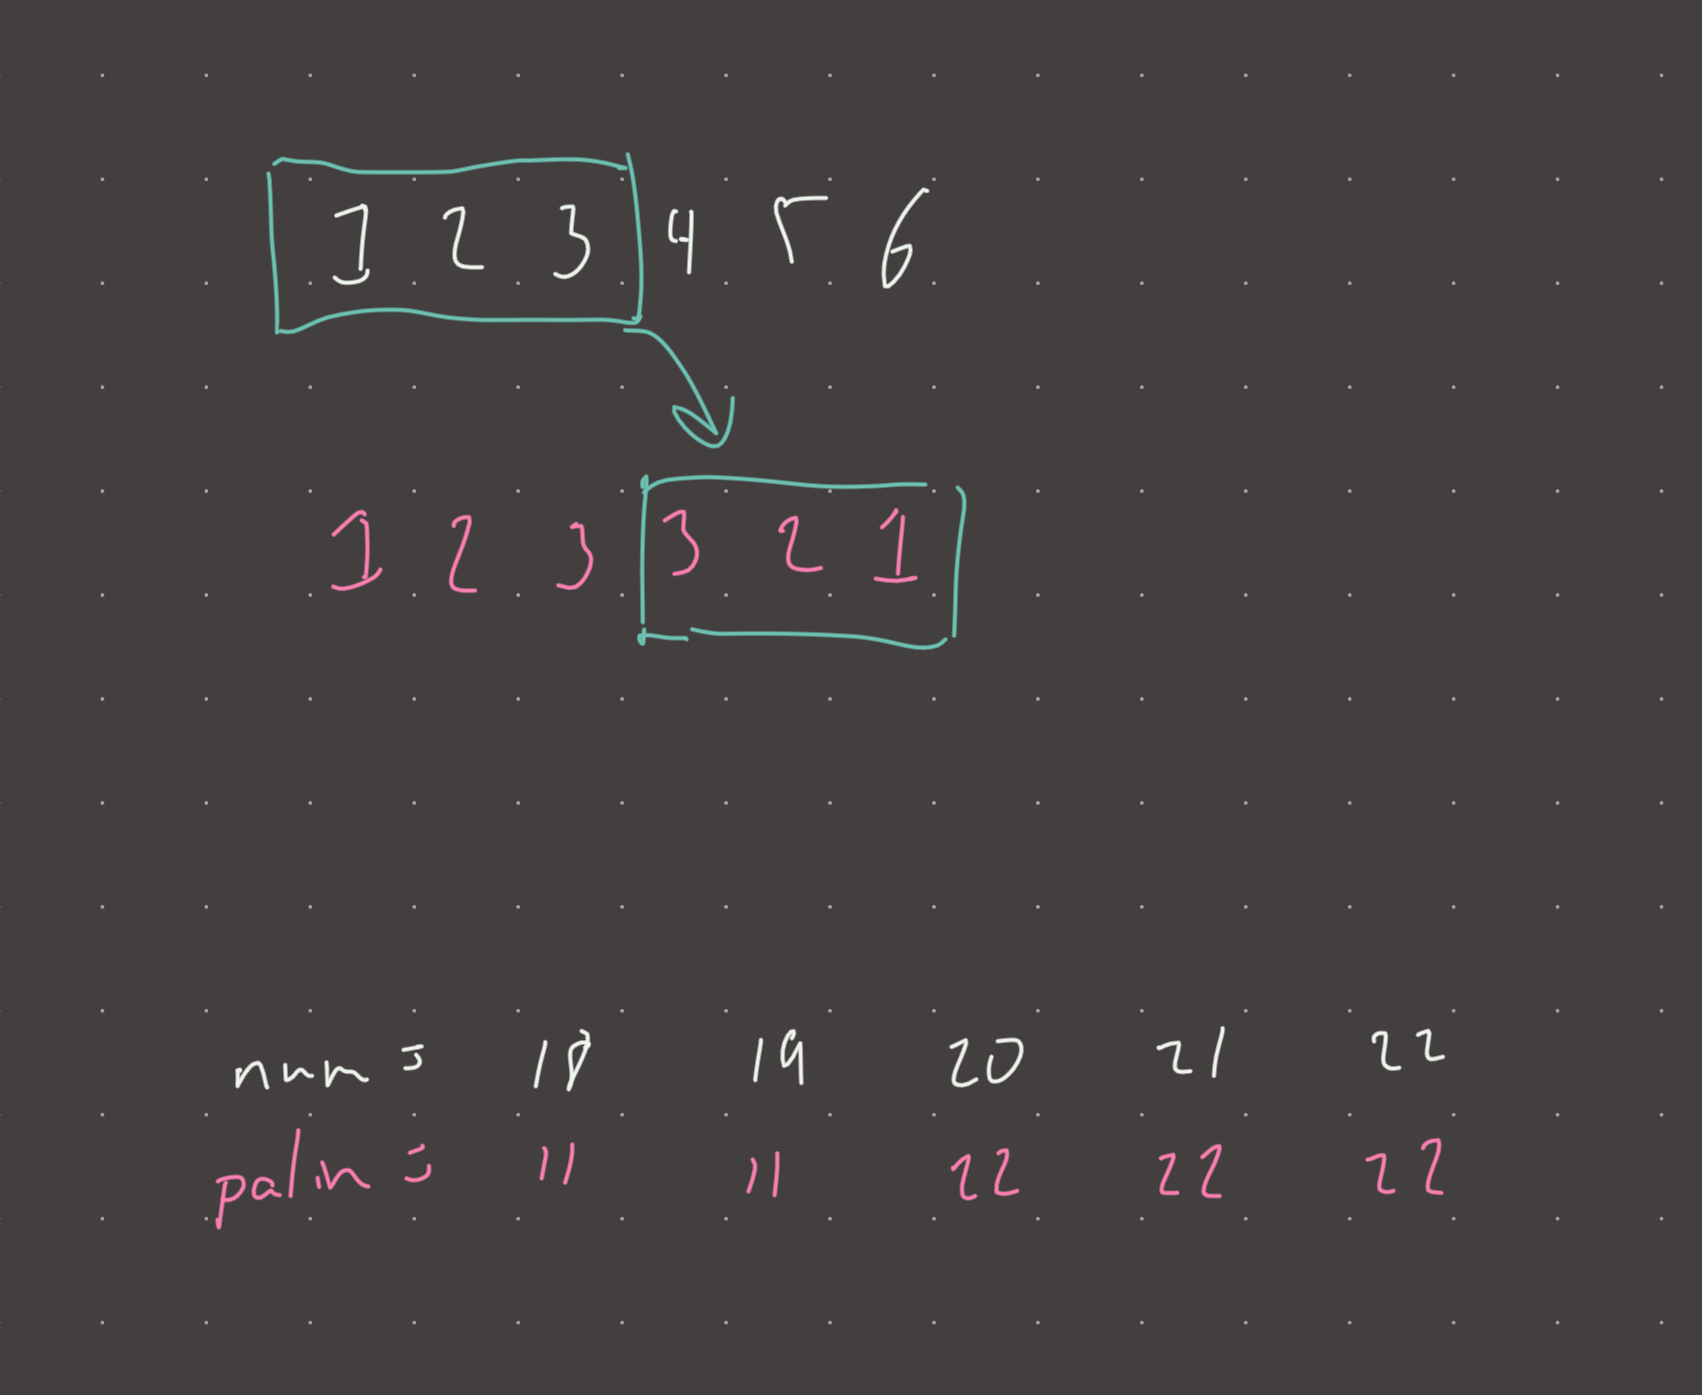 1 2 3 4 5 6
1 2 3 3 2 1
num = 18 19 20 21 22
palin = 11 11 22 22 22